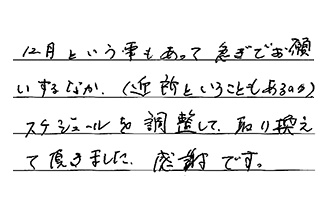 12月という事もあって急ぎでお願
いするなか、(近所ということもあるのか)
スケジュールを調整して、取り換え
て頂きました。感謝です。